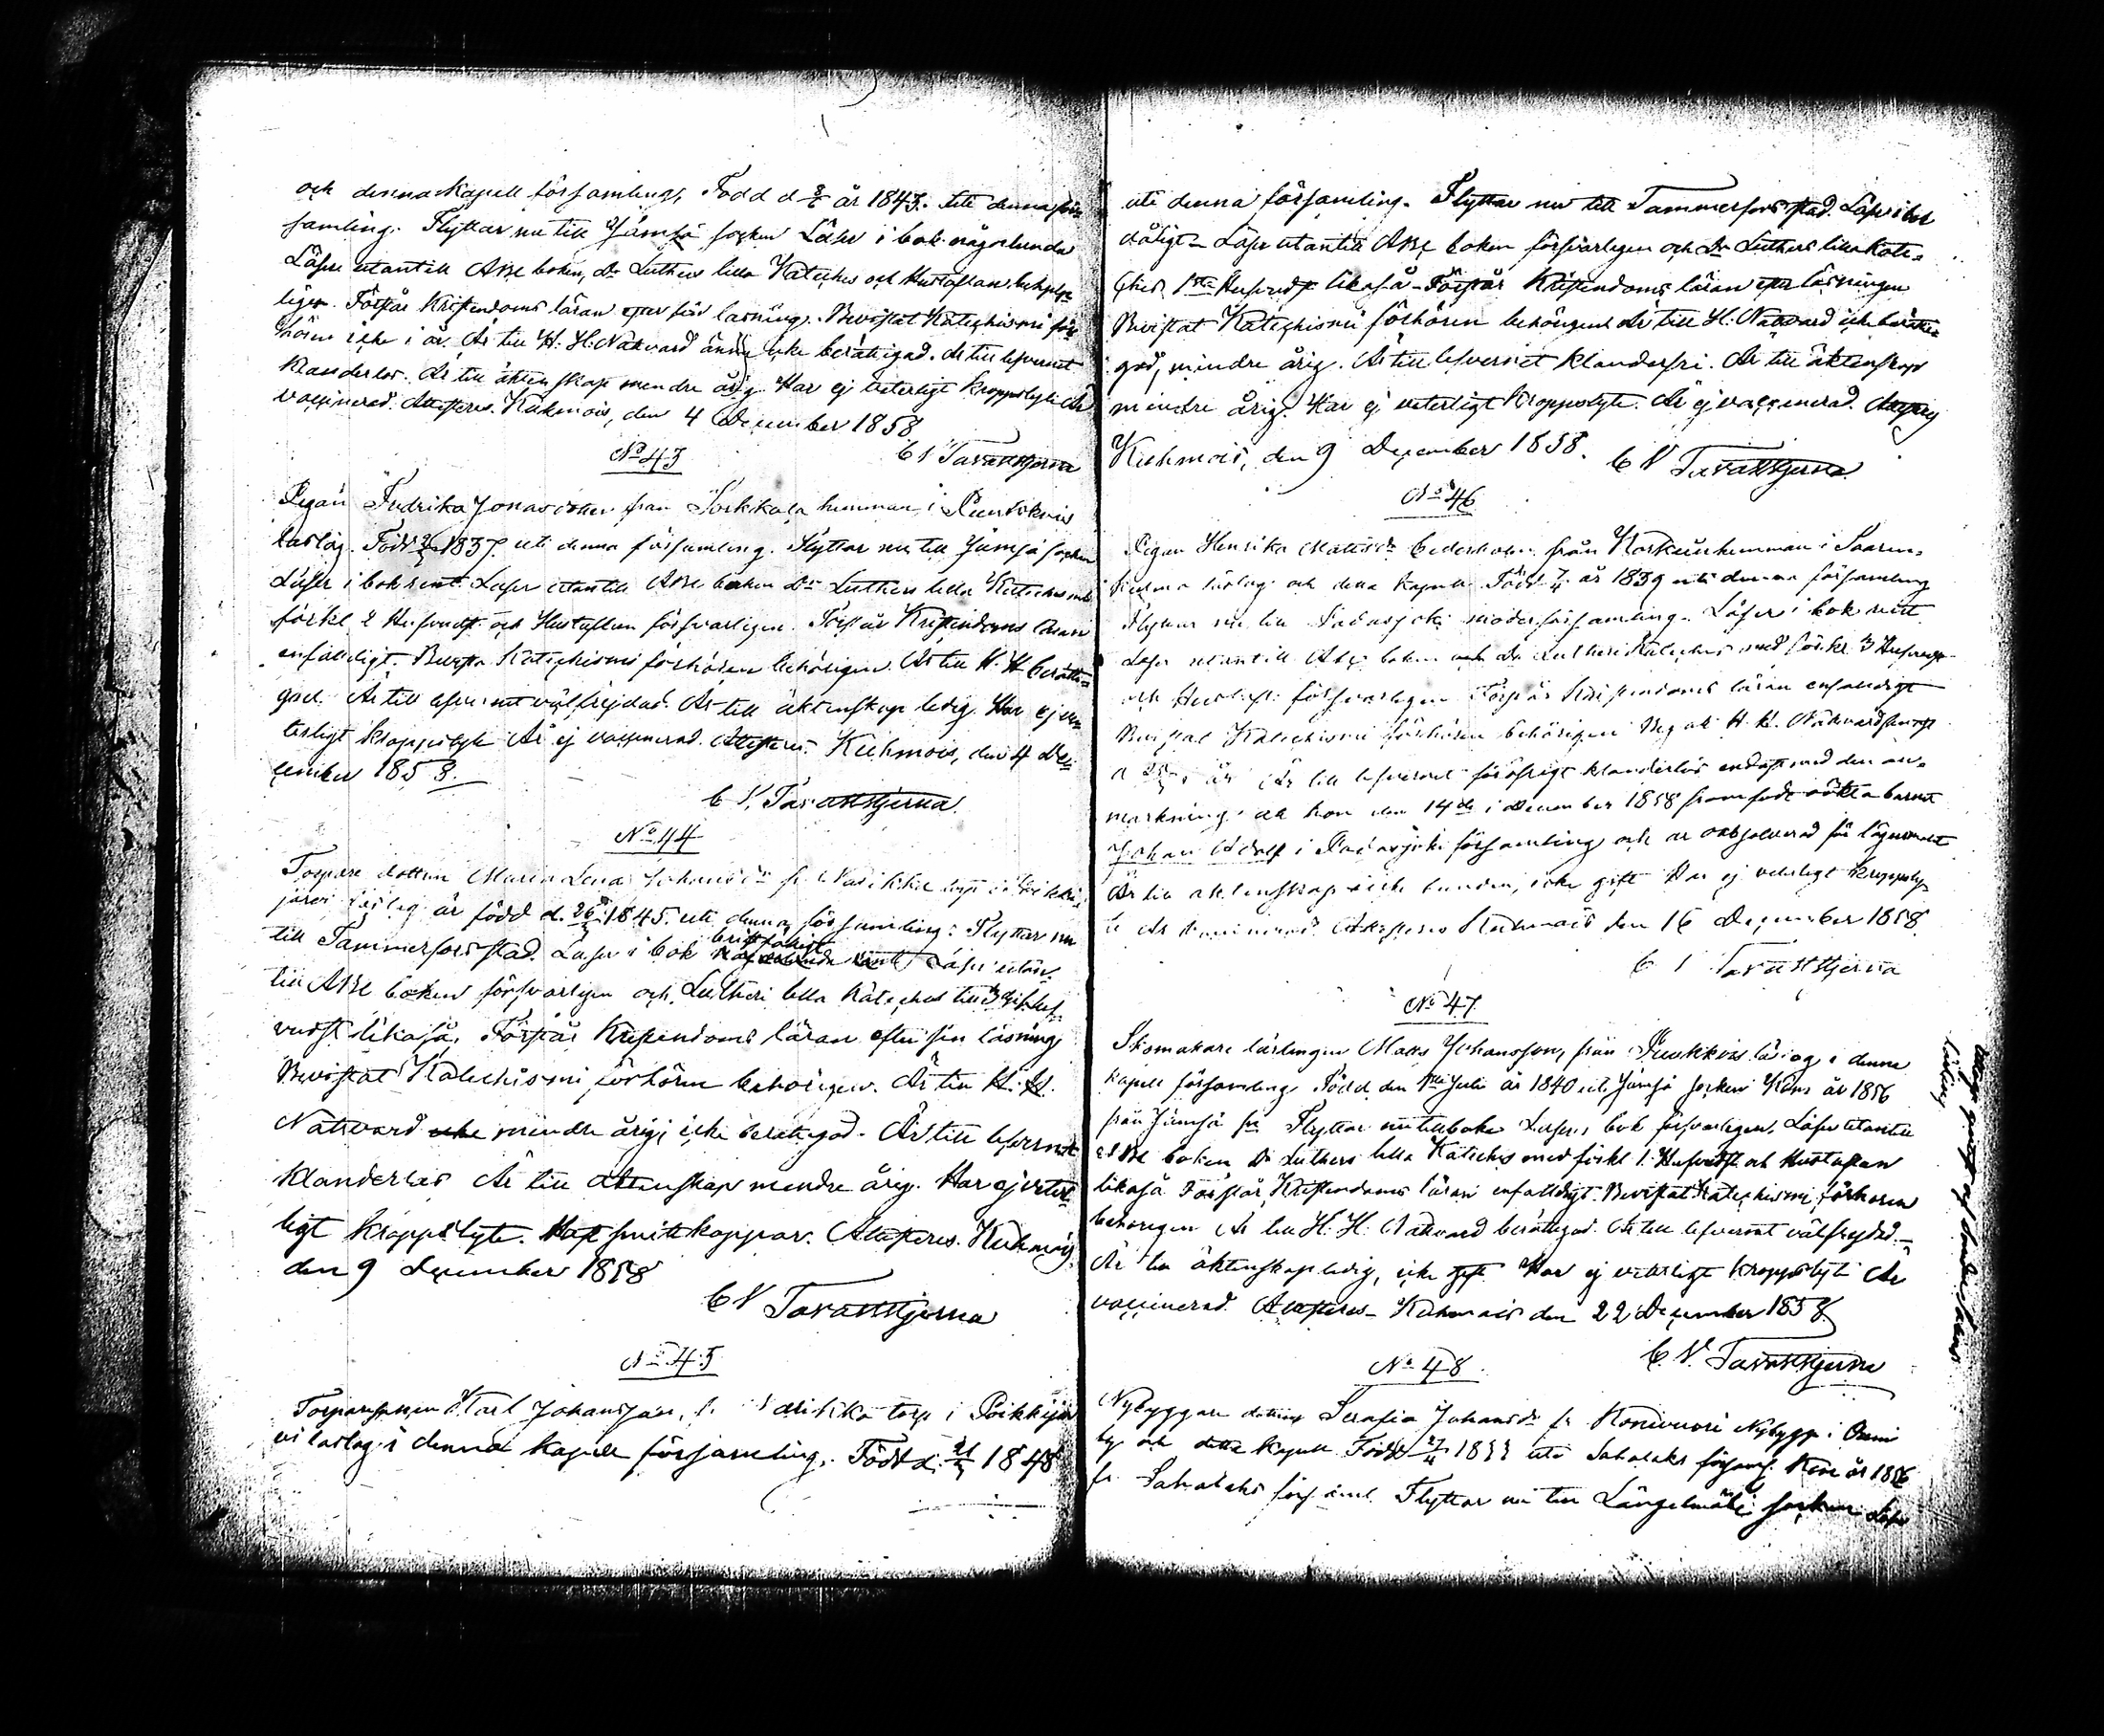 och denna Kapell församling, Född d 2/2 år 1843. uti denna för
samling. Flyttar nu till Jämsä socken Läser i bok någorlunda
Läser utantill ABC boken, Dr Luthers lilla Kateches och Hustaflan behjelp
ligen. Förstår Kristendoms läran efter sin läsning. Bevistat Katechismi för
hören icke i år. Är till H. H. Nattvard ännu icke berättigad. Är till lefvernet
klanderlös. Är till äktenskap mindre årig Har ej veterligt kroppslyte Är
vaccinerad. Attesteras. Kuhmois, den 4 December 1858
C N Tavaststjerna
No 43
Pigan Fredrika Jonasdotter från hemman i Puukkois
laslag. Född 1837. uti denna församling. Flyttar nu till Jämsä socken
Läser i bok rent Läser utantill ABC boken Dr Luthers lilla Kateches med
förkl 2 Hufvudst. och Hustaflan försvarligen. Förstår Kristendoms läran
enfaldigt. Bevista Katechismi förhören behörigen Är till H. H berätti=
gad. Är till lefvernet välfrejdad. Är till äktenskap ledig. Har ej ve
terligt kroppslyte Är ej vaccinerad. Attesteras. Kuhmois, den 4 De=
cember 1858.
C N. Tavaststjerna
No 44
Torpare dottren Maria Lena Johansdr fr. torp i Poikki
järvi laslag är född d. 26 1845. uti denna församling: Flyttar nu
till Tammerfors stad. Läser i bok bristfälligt Läser utan
till ABC boken försvarligen och Lutheri lilla Kateches till 3 Huf
vudst likaså. Förstår Kristendoms läran efter sin läsning
Bevistat Katechismi förhören behörigen. Är till H. H.
Nattvard icke mindre årig, icke berättigad. Är till lefvernet
klanderlös Är till äktenskap mindre årig. Har ej veter
ligt kroppslyte. Haft smittkoppor. Attesteras. Kuhmois,
den 9 December 1858
C N Tavaststjerna
No 45
Torparesonen Karl Johansson, torp i Poikkijär
vi laslag i denna kapell församling. Född d. 21 1848
uti denna församling. Flyttar nu till Tammerfors stad. Läser i bok
dåligt Läser utantill ABC boken försvarligen och Dr Luthers lilla Kate=
ches 1sta Hufvudst likaså Förstår Kristendoms läran efter läsningen
Bevistat Katechismi förhören behörigen Är till H. Nattvard icke berätti=
gad, mindre årig. Är till lefvernet klanderfri. Är till äktenskap
mindre årig. Har ej veterligt kroppslyte. Är ej vaccinerad.
Kuhmois, den 9 December 1858.
C N Tavaststjerna
No 46
Pigan Henrika Mattsdr Cederholm från hemman i Saaren=
laslag och detta kapell Född 7/4 år 1839 uti denna församling
Flyttar nu till Padasjoki moderförsamling. Läser i bok rent
Läser utantill Abc boken och Dr Lutheri Kateches med förkl 3 Hufvudst
och Hustafl. försvarligen Förstår Kristendoms läran enfaldigt
Bevistat Katechismi förhören behörigen Begått H. H. Nattvard
Är till lefvernet för öfrigt klanderlös endast med den an=
märkning att hon den 14de i December 1858 framfödt oäkta barnet
Johan Adolf i Padasjoki församling och är absolverad för lägersmål
Är till äktenskap icke bunden, icke gift Har ej veterligt kropps
te Är vaccinerad Attesteras Kuhmois den 16 December 1858.
C N Tavaststjerna
No 47
Skomakare lärlingen Matts Johansson, från Puukkois laslag i denna
kapell församling Född den 1sta Juli år 1840 uti Jämsä socken Kom år 1856
från Jämsä sn Flyttar nu tillbaka Läser i bok försvarligen, Läser utantill
ABC boken Dr Luthers lilla Kateches med förkl 1. Hufvudst och Hustaflan
likaså Förstår Kristendoms läran enfaldigt. Bevistat Katechismi förhören
behörigen Är till H. H. Nattvard berättigad. Är till lefvernet välfrejdad.
Är till äktenskap ledig, icke gift Har ej veterligt kroppslyte Är
vaccinerad. Attesteras Kuhmois den 22 December 1858.
C. N. Tavaststjerna
No 48
Nybyggare dottren Serafia Johansdr fr Nybygge i
by och detta kapell Född uti Sahalaks församl. Kom år 1856
fr. Sahalaks församl. Flyttar nu till Längelmäki socken Läser